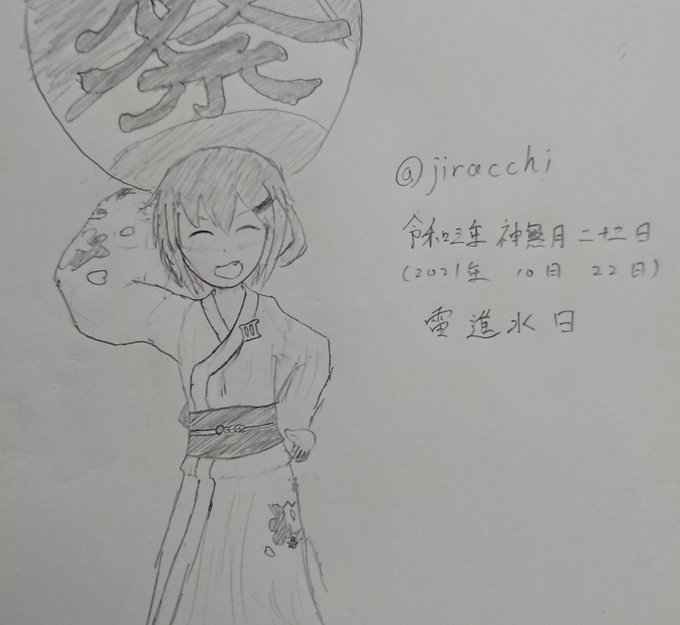 祭
@jiracchi
令和三年 神無月 二十二日
(2021年 10月 22日)
雷進水日